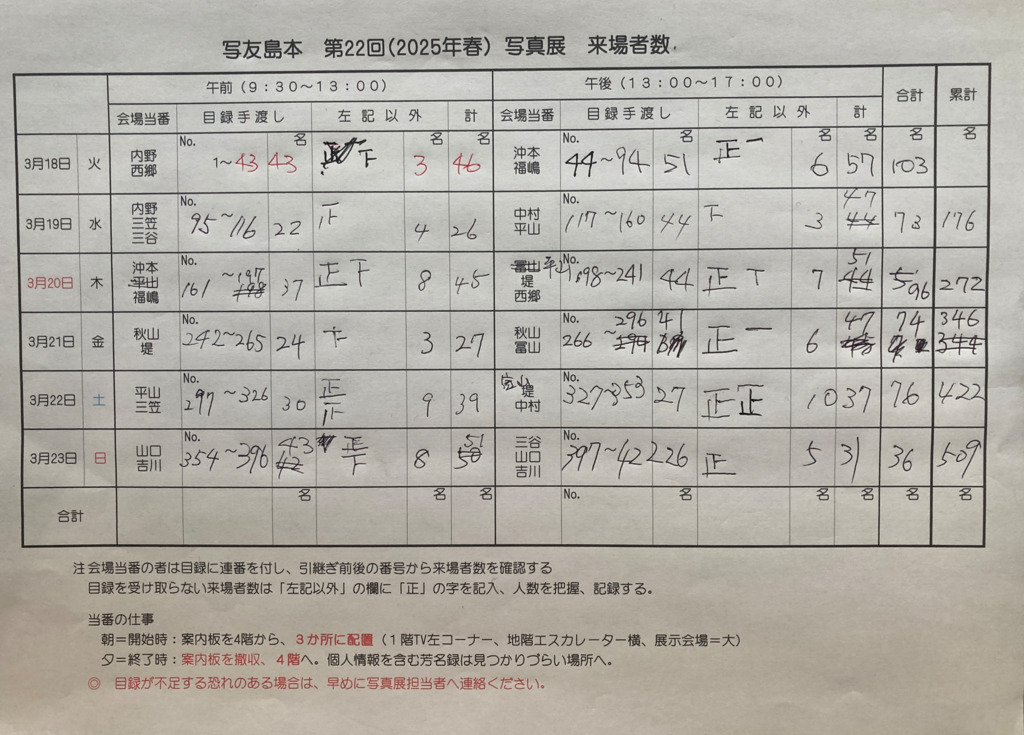 写友島本 第22回(2025年春) 写真展 来場者数
午前(9:30~13:00) 午後(13:00~17:00) 合計 累計
会場当番 目録手渡し 左記以外 計 会場当番 目録手渡し 左記以外 計
3月18日 火 内野 西郷 No. 1~43 43名 下 3名 46名 沖本 福嶋 No. 44~94 51名 正一 6名 57名 103名 名
3月19日 水 内野 三笠 三谷 No. 95~116 22 正 4 26 中村 平山 No. 117~160 44 下 3 47 44 73 176
3月20日 木 沖本 平山 福嶋 No. 161~197 198 37 正下 8 45 冨山 平山 堤 西郷 No. 198~241 44 正丅 7 51 44 96 272
3月21日 金 秋山 堤 No. 242~265 24 下 3 27 秋山 冨山 No. 266~296 294 41 正一 6 47 74 346 344
3月22日 土 平山 三笠 No. 297~326 30 正正 9 39 堤 中村 No. 327~353 27 正正 10 37 76 422
3月23日 日 山口 吉川 No. 354~396 43 42 正下 8 51 50 三谷 山口 吉川 No. 397~422 26 正 5 31 36 509
合計 名 名 名 No. 名 名 名 名 名
注 会場当番の者は目録に連番を付し、引継ぎ前後の番号から来場者数を確認する
目録を受け取らない来場者数は「左記以外」の欄に「正」の字を記入、人数を把握、記録する。
当番の仕事
朝=開始時:案内板を4階から、3か所に配置(1階TV左コーナー、地階エスカレーター横、展示会場=大)
夕=終了時:案内板を撤収、4階へ。個人情報を含む芳名録は見つかりづらい場所へ。
◎ 目録が不足する恐れのある場合は、早めに写真展担当者へ連絡ください。